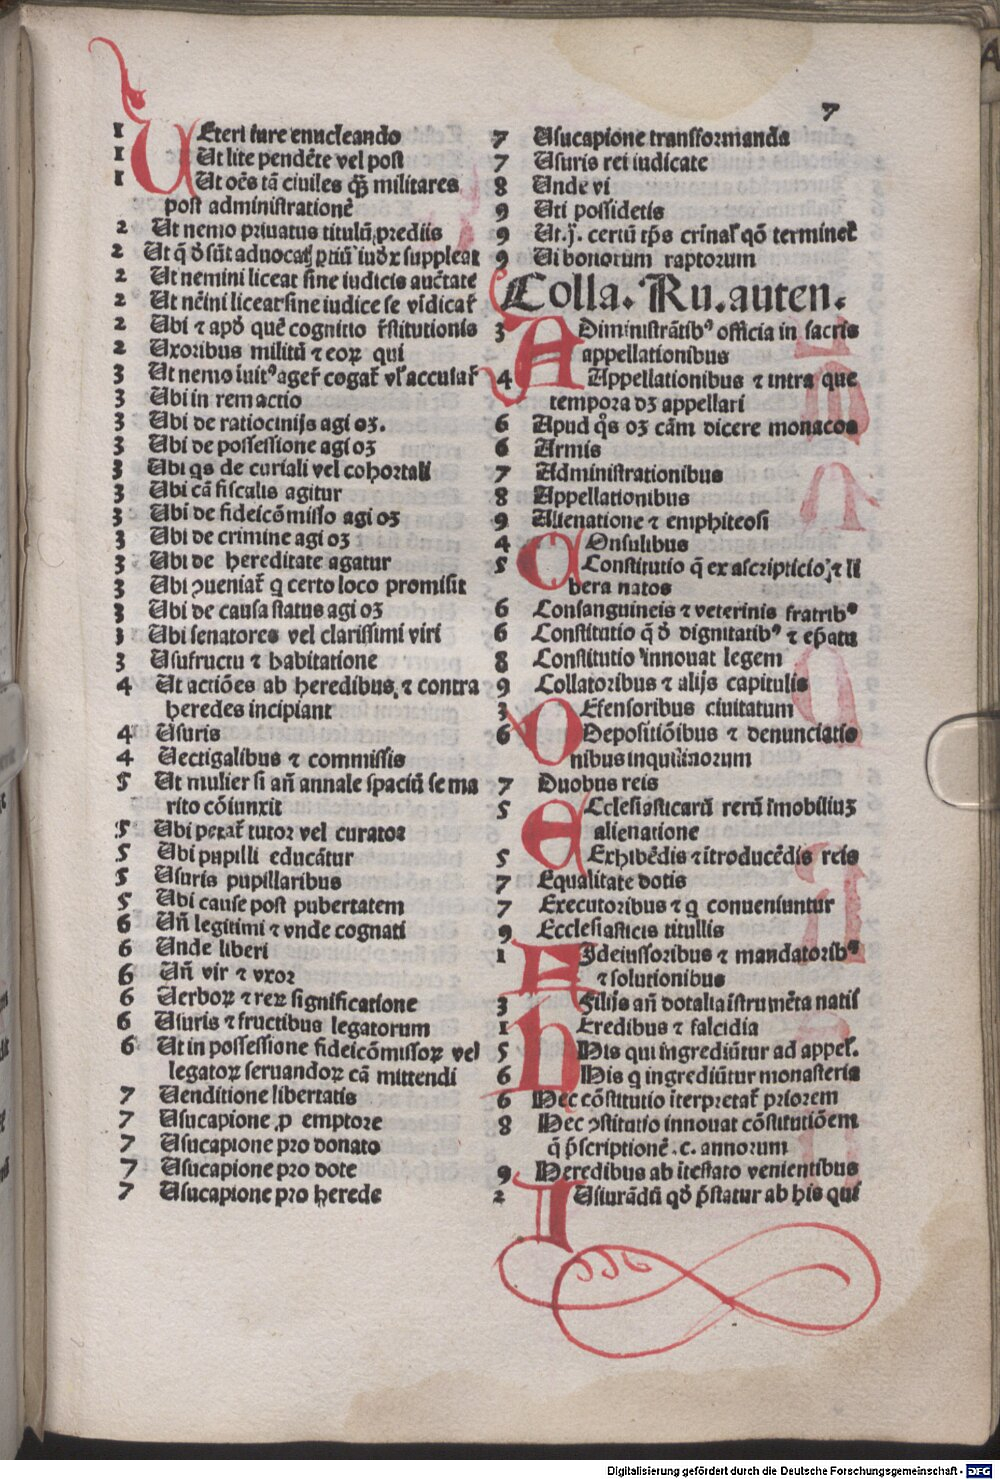 7
1 VEteri iure enucleando
1 Ut lite pendēte vel post
1 Ut oēs tā ciuiles q̄ȝ militares
post administrationē
2 Ut nemo priuatus titulū prediis
2 Ut q̄ d̄sūt aduocati ptiū iudꝛ suppleat
2 Ut nemini liceat sine iudicis auctate
2 Ut nēini liceat sine iudice se vīdicar̄
2 Ubi ⁊ apđ quē cognitio r̄stitutionis
2 Uxoribus militū ⁊ eoꝝ qui
3 Ut nemo iuitꝰ ager̄ cogat̄ vl̓ accusar̄
3 Ubi in rem actio
3 Ubi de ratiocinijs agi oȝ.
3 Ubi de possessione agi oȝ
3 Ubi qs de curiali vel cohortali
3 Ubi cā fiscalis agitur
3 Ubi de fideicōmisso agi oȝ
3 Ubi de crimine agi oȝ
3 Ubi de hereditate agatur
3 Ubi ꝯueniat̄ q certo loco promisit
3 Ubi de causa status agi oȝ
3 Ubi senatores vel clarissimi viri
3 Usufructu ⁊ habitatione
4 Ut actiōes ab heredibus ⁊ contra
heredes incipiant
4 Usuris
4 Uectigalibus ⁊ commissis
5 Ut mulier si añ annale spaciū se ma
rito cōiunxit
5 Ubi petat̄ tutor vel curator
5 Ubi pupilli educātur
5 Usuris pupillaribus
5 Ubi cause post pubertatem
6 Uñ legitimi ⁊ vnde cognati
6 Unde liberi
6 Uñ vir ⁊ vxor
6 Uerboꝝ ⁊ reꝝ significatione
6 Usuris ⁊ fructibus legatorum
6 Ut in possessione fideicōmissoꝝ vel
legatoꝝ seruandoꝝ cā mittendi
7 Uenditione libertatis
7 Usucapione ꝓ emptore
7 Usucapione pro donato
7 Usucapione pro dote
7 Usucapione pro herede
7 Usucapione transformanda
7 Usuris rei iudicate
8 Unde vi
9 Uti possidetis
9 Ut.j. certū tp̄s crīnal̓ qō terminet̄
9 Ui bonorum raptorum
Colla. Ru. auten.
3 ADiministrātibꝰ officia in sacris
appellationibus
4 Appellationibus ⁊ intra que
tempora dȝ appellari
6 Apud q̄s oȝ cām dicere monacos
6 Armis
7 Administrationibus
8 Appellationibus
9 Alienatione ⁊ emphiteosi
4 COnsulibus
5 Constitutio q̄ ex ascripticio ⁊ li
bera natos
6 Consanguineis ⁊ veterinis fratribꝰ
6 Constitutio q̄ d̄ dignitatibꝰ ⁊ ep̄atu
8 Constitutio innouat legem
9 Collatoribus ⁊ alijs capitulis
3 DEfensoribus ciuitatum
6 Depositiōibus ⁊ denunciatio
nibus inquilinorum
7 Duobus reis
5 ECclesiasticarū rerū īmobiliuȝ
alienatione
5 Exhibēdis ⁊ itroducēdis reis
7 Equalitate dotis
7 Executoribus ⁊ q conueniuntur
9 Ecclesiasticis titullis
1 FIdeiussoribus ⁊ mandatoribꝰ
⁊ solutionibus
3 Filijs añ dotalia istrumēta natis
1 HEredibus ⁊ falcidia
5 His qui ingrediūtur ad appel̓.
6 His q ingrediūtur monasteria
6 Hec cōstitutio iterpretat̄ priorem
8 Hec ꝯstitutio innouat cōstitutiōem
q̄ p̄scriptionē .c. annorum
9 Heredibus ab itestato venientibus
2 IUsiurādū qđ p̄statur ab his qui
Digitalisierung gefördert durch die Deutsche Forschungsgemeinschaft - DFG